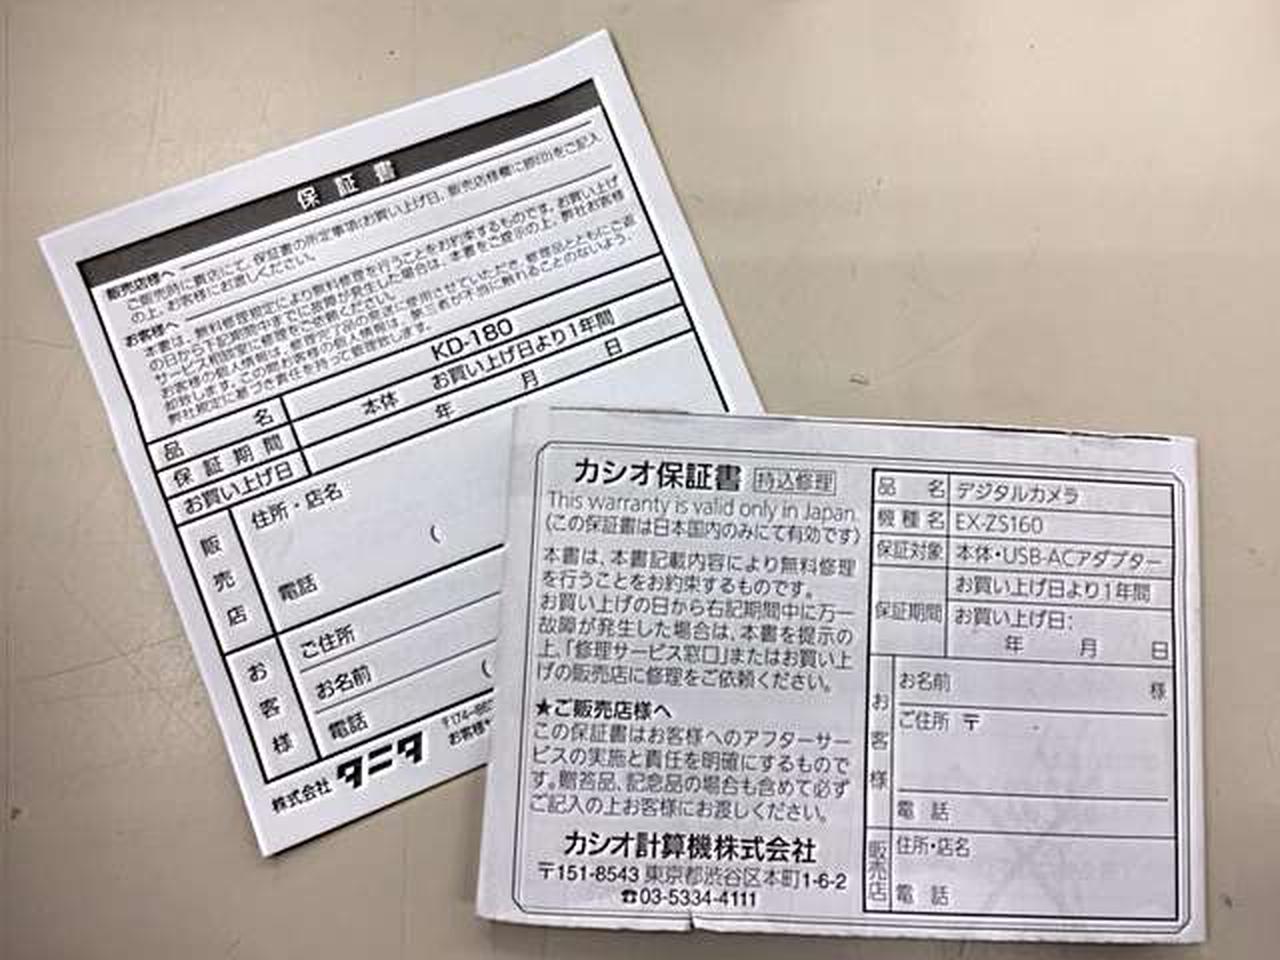 保証書
販売店様へ
ご販売時に貴店にて、保証書の所定事項(お買い上げ日、販売店様欄に捺印)をご記入
の上、お客様にお渡しください。
お客様へ
本書は、無料修理規定により無料修理を行うことをお約束するものです。お買い上げ
の日から下記期間中までに故障が発生した場合は、本書をご提示の上、弊社お客様
サービス相談室に修理をご依頼ください。
お客様の個人情報は、修理完了品の発送に使用させていただき、修理品とともにご返
却致します。この間お客様の個人情報は、第三者が不当に触れることのないよう、
弊社規定に基づき責任を持って管理致します。
品名 KD-180
保証期間 本体 お買い上げ日より1年間
お買い上げ日 年 月 日
販売店
住所・店名
(
電話
お客様
ご住所
お名前
(
電話
株式会社タニタ
お客様
カシオ保証書 持込修理
This warranty is valid only in Japan.
(この保証書は日本国内のみにて有効です)
本書は、本書記載内容により無料修理
を行うことをお約束するものです。
お買い上げの日から右記期間中に万一
故障が発生した場合は、本書を提示の
上、「修理サービス窓口」またはお買い上
げの販売店に修理をご依頼ください。
★ご販売店様へ
この保証書はお客様へのアフターサー
ビスの実施と責任を明確にするもので
す。贈答品、記念品の場合も含めて必ず
ご記入の上お客様にお渡しください。
カシオ計算機株式会社
〒151-8543 東京都渋谷区本町1-6-2
☎03-5334-4111
品名 デジタルカメラ
機種名 EX-ZS160
保証対象 本体・USB-ACアダプター
保証期間 お買い上げ日より1年間
お買い上げ日:
年 月 日
お客様
お名前 様
ご住所 〒 -
電話
販売店
住所・店名
電話